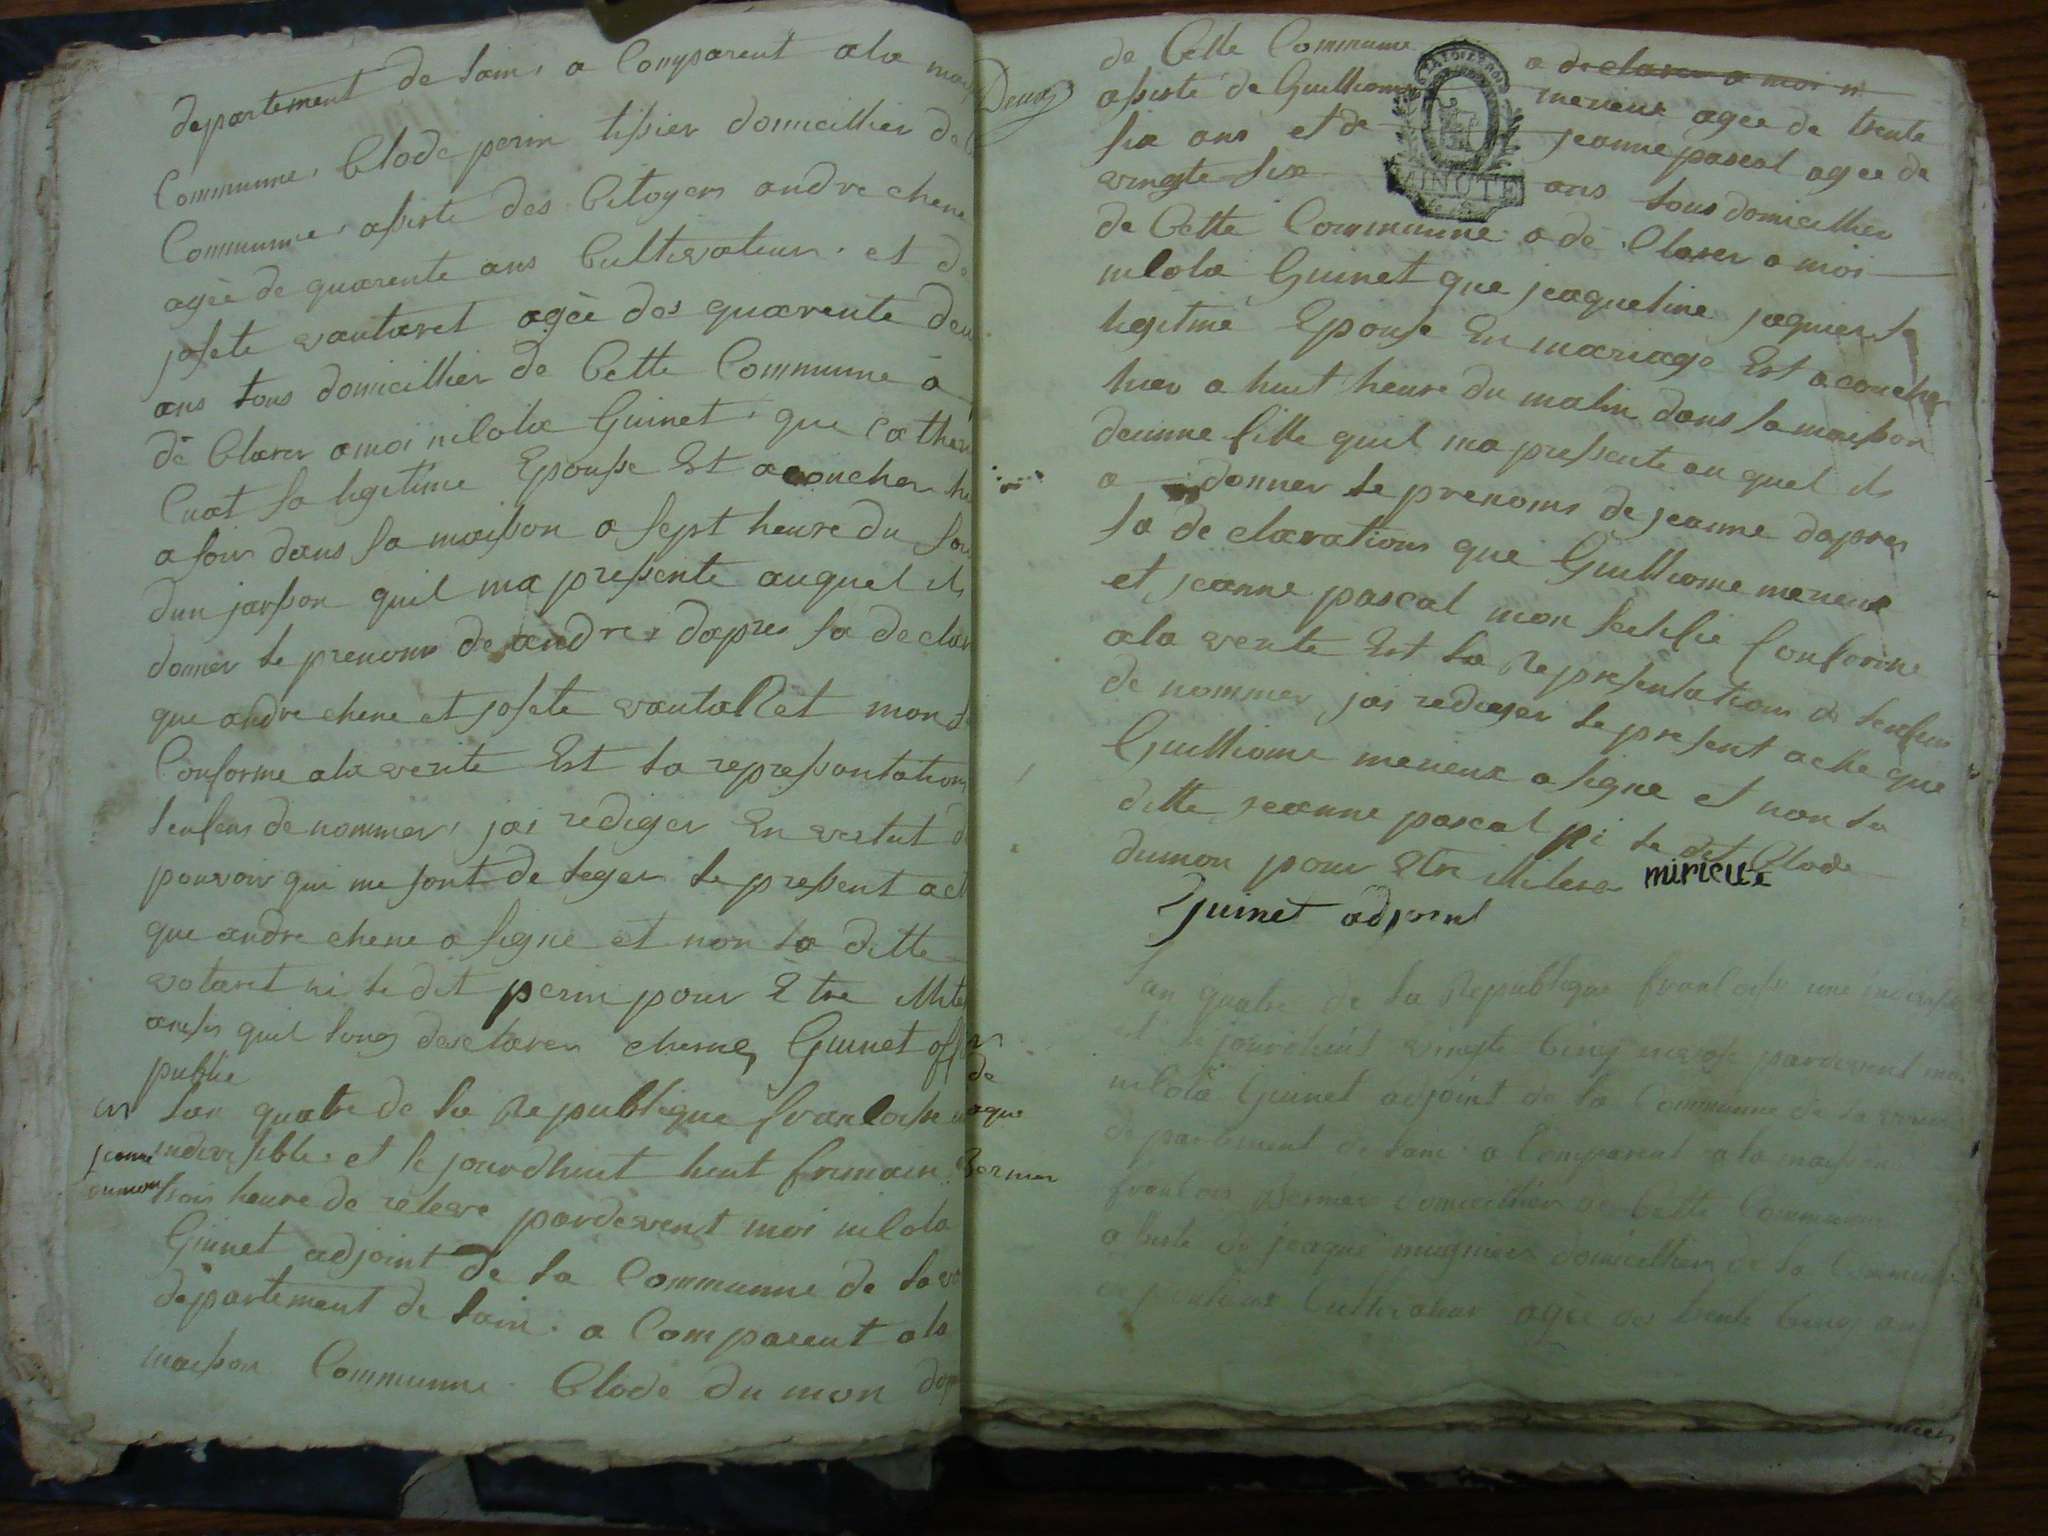 departement de lain, a Comparent ala
Commune, Clode perin tissier domicillier de
Commune, assiste des Citoyen andre chene
agée de quarente ans Cultivateur, et de
josete vautaret agée des quarente deu
ans tous domicillier de Cette Commune à
dé Clarer a moi nicola Guinet, que Cather
Cuat sa legitime Epouse Est acoucher
a soir dans sa maison a sept heure du soi
dun jarson quil ma presente auquel il
donner le prenom de andre, dapres sa declar
que andre chene et josete vautaRet mon
Conforme ala verite Est la representation
lenfens de nommer, jai rediger En vertut d
pouvoir qui me sont de leger le present act
que andre chene a signe et non la ditte
votaret ni le dit perin pour Etre illite
quil long desclarer chene Guinet off
publie
Lan quatre de la Republique francoise
jeanne indivisible, et le jourdhuit huit frimair
dumon trois heure de releve pardevent moi nicola
Guinet adjoint de la Commune de
departement de lain, a Comparent ala
maison Commune Clode du mon
Deux
de Cette Commune a declarer a moi n
assisté de Guilliome merieux agée de trente
six ans et de jeanne pascal agée de
vingte six ans tous domicillier
de Cette Commune a dé Clarer a moi
nicola Guinet que jeaqueline jaquier sa
legitime Epouse En mariage Est acoucher
hier a huit heure du matin dans sa maison
deunne fille quil ma presente au quel il
a donner le prenoms de jeanne dapres
sa de claration que Guilliome merieux
et jeanne pascal mon sertifie Conforme
ala verite Est la Representation de lenfens
de nommer jai rediger le present acte que
Guilliome merieux a signe et non la
ditte jeanne pascal ni le dit Clode
dumon pour Etre illitere mirieux
Guinet adjoint
MINUTE
Lan quatre de la Republique francoise une indivisible
et le jourdhuit vingte Cinq nivose pardevent moi
nicola Guinet adjoint de la Commune de la
departement de lain a Comparent ala maison
francois Bernier domicillier de Cette Commune
assiste de jeaque mugnier domicillier de la Commune
Cultivateur agée des trente Cinq ans